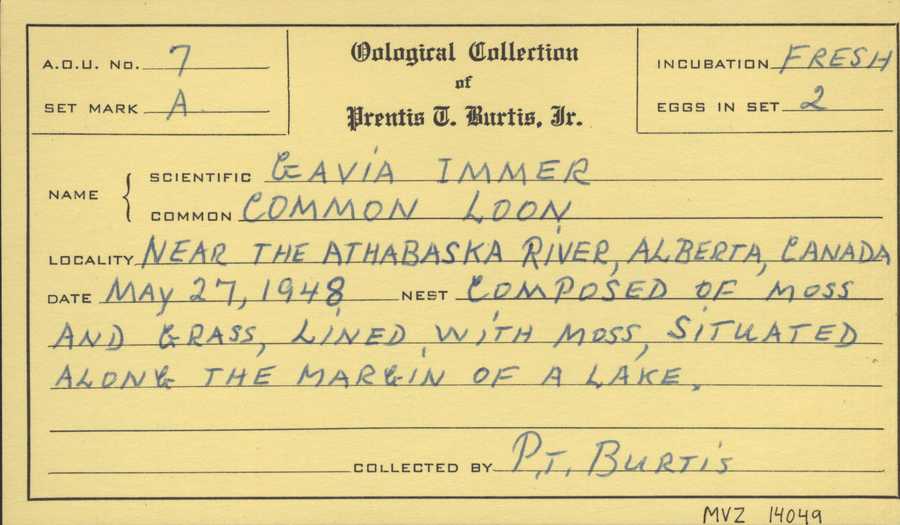 A.O.U. No. 7
SET MARK A
Oological Collection
of
Prentis T. Burtis, Jr.
INCUBATION FRESH
EGGS IN SET 2
NAME
SCIENTIFIC GAVIA IMMER
COMMON COMMON LOON
LOCALITY NEAR THE ATHABASKA RIVER, ALBERTA, CANADA
DATE MAY 27, 1948 NEST COMPOSED OF MOSS
AND GRASS, LINED WITH MOSS, SITUATED
ALONG THE MARGIN OF A LAKE.
COLLECTED BY P.T. BURTIS
MVZ 14049